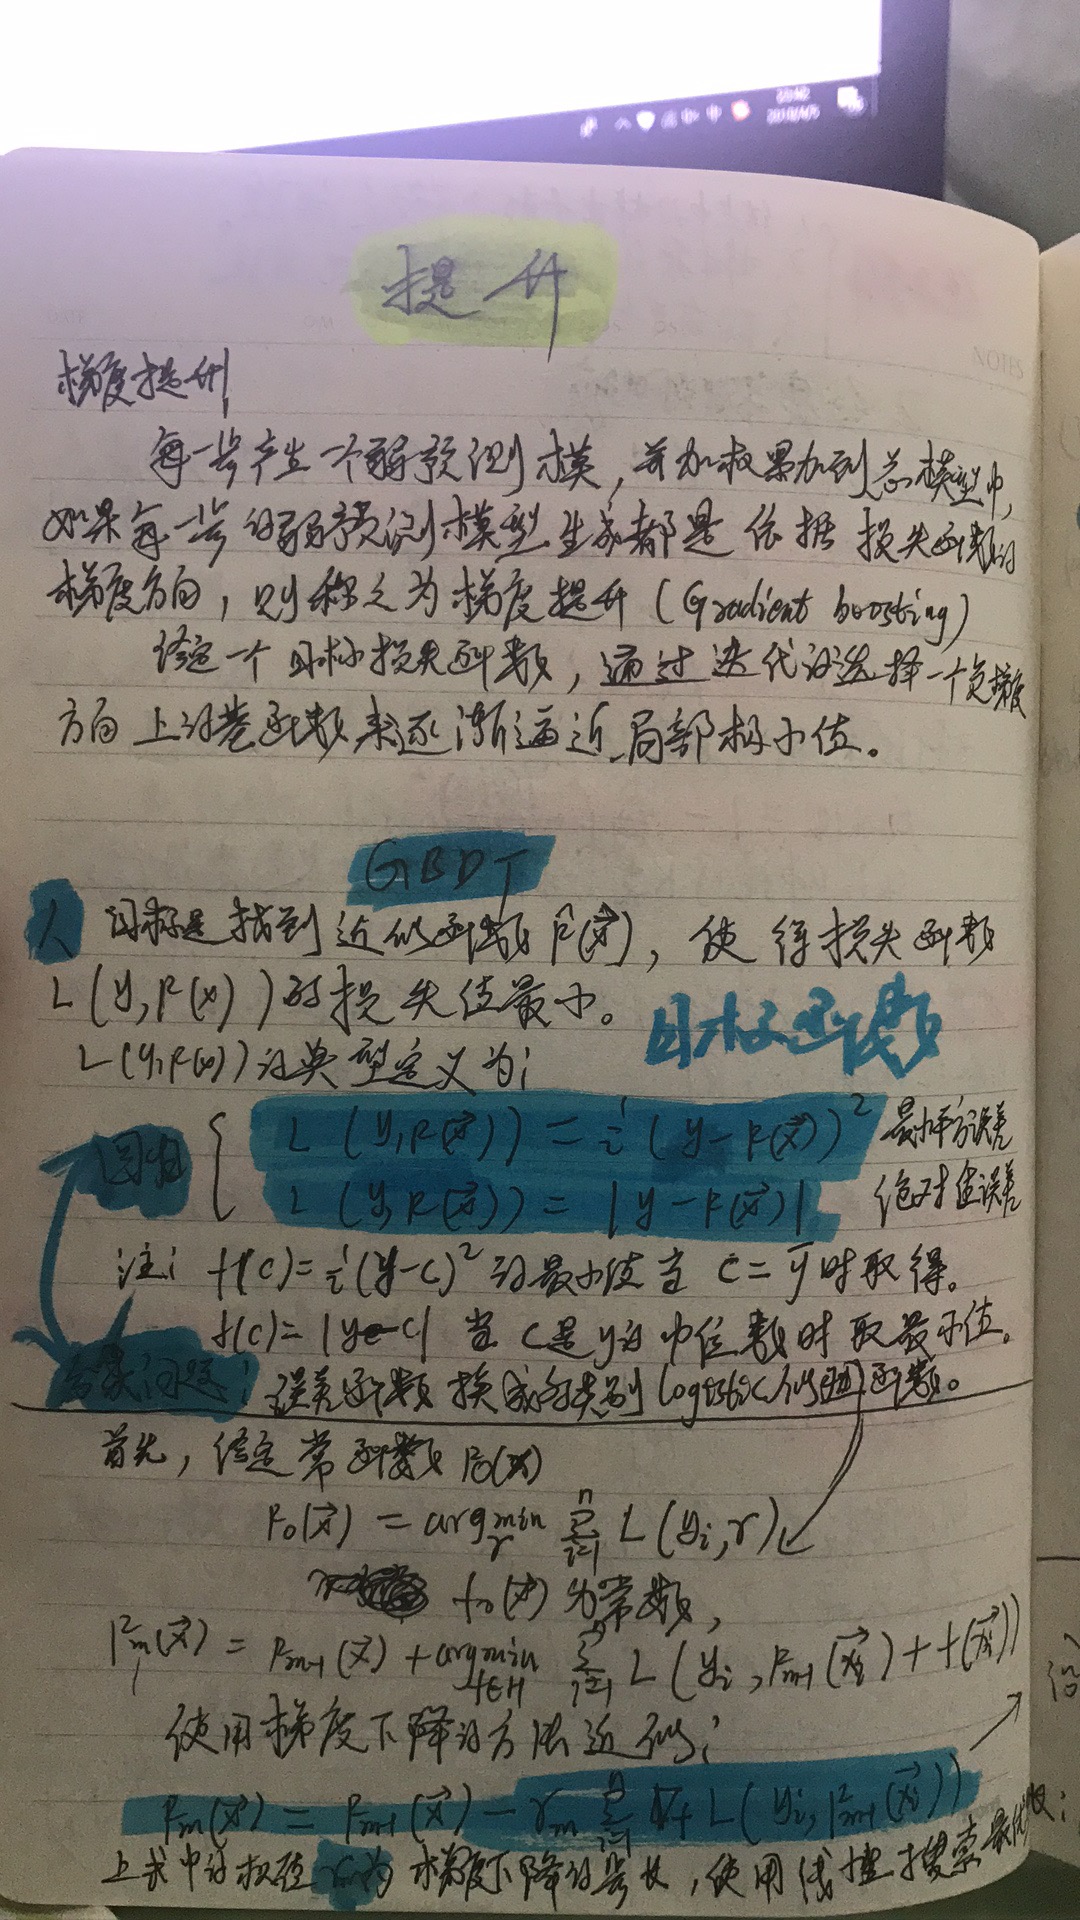 提升
NOTES
梯度提升
每一步产生一个弱预测模,并加权累加到总模型中,
如果每一步的弱预测模型生成都是依据损失函数的
梯度方向,则称之为梯度提升(Gradient boosting)
给定一个目标损失函数,通过迭代的选择一个负梯度
方向上的基函数来逐渐逼近局部极小值。
GBDT
目标是找到近似函数F̂(x⃗),使得损失函数
L(y,F(x))的损失值最小。
目标函数
L(y,F(x))的典型定义为:
回归 { L(y,F(x⃗)) = ½(y-F(x⃗))² 最小平方误差
L(y,F(x⃗)) = |y-F(x⃗)| 绝对值误差
注: f(c)=½(y-c)²的最小值在 c=ȳ时取得。
f(c)=|y-c| 当c是y的中位数时取最小值。
分类问题: 误差函数换成多类别logistic似然函数。
首先,给定常函数F₀(x)
F₀(x⃗) = argmin_r Σ_{i=1}^n L(y_i,r)
f₀(x)为常数,
F_m(x⃗) = F_{m-1}(x⃗) + argmin_{f∈H} Σ_{i=1}^n L(y_i, F_{m-1}(x⃗_i) + f(x⃗_i))
使用梯度下降的方法近似:
F_m(x⃗) = F_{m-1}(x⃗) - r_m Σ_{i=1}^n ∇_f L(y_i, F_{m-1}(x⃗_i))
上式中的权值r为梯度下降的步长,使用线性搜索最优